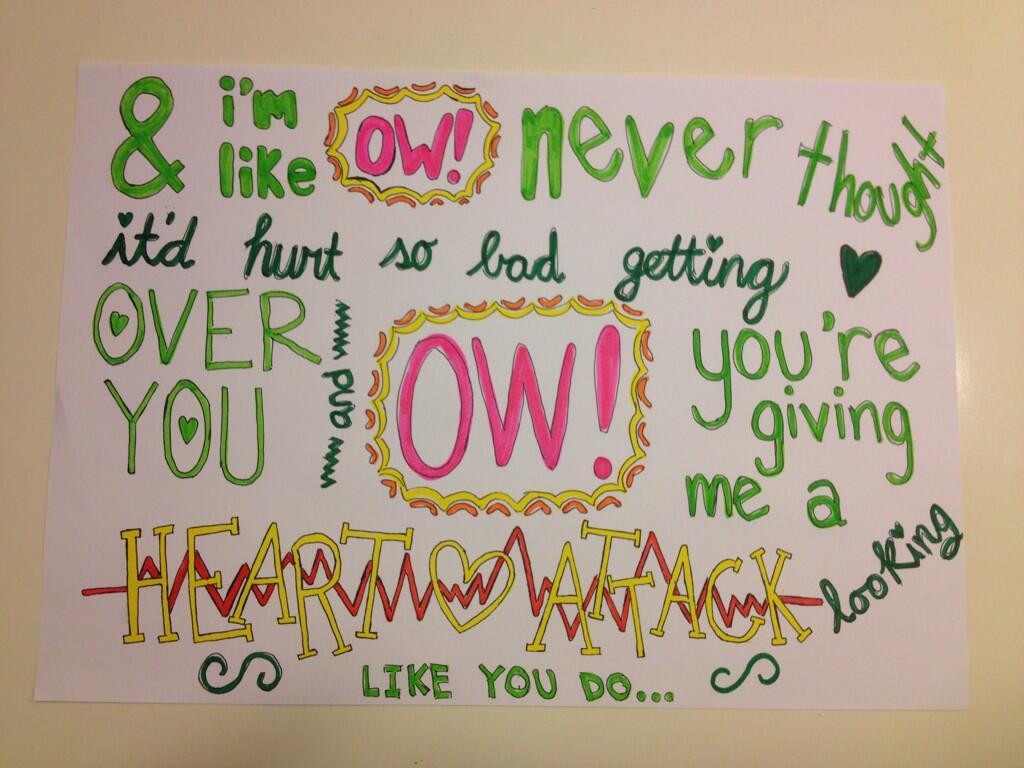 & i'm like OW! never thought
it'd hurt so bad getting
OVER YOU and OW! you're giving me a
HEART ATTACK looking
LIKE YOU DO...